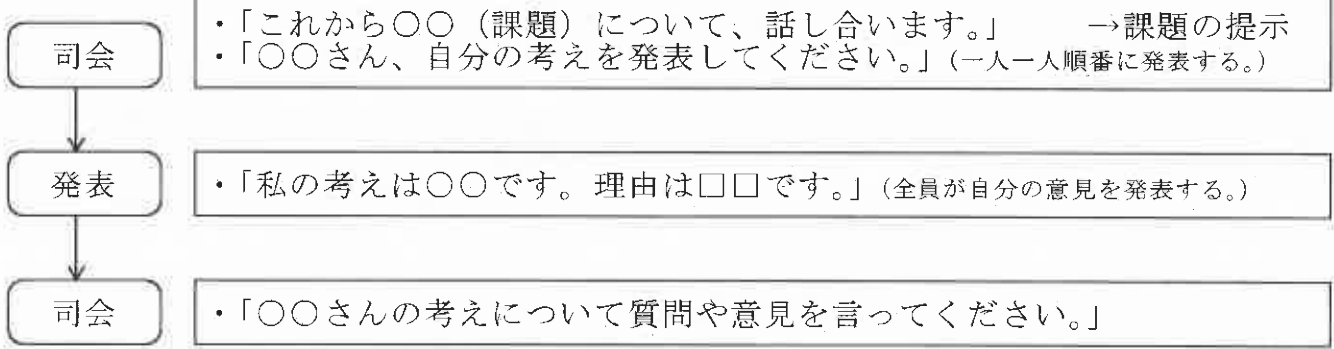 司会
・「これから○○（課題）について、話し合います。」　→課題の提示
・「○○さん、自分の考えを発表してください。」（一人一人順番に発表する。）
発表
・「私の考えは○○です。理由は□□です。」（全員が自分の意見を発表する。）
司会
・「○○さんの考えについて質問や意見を言ってください。」